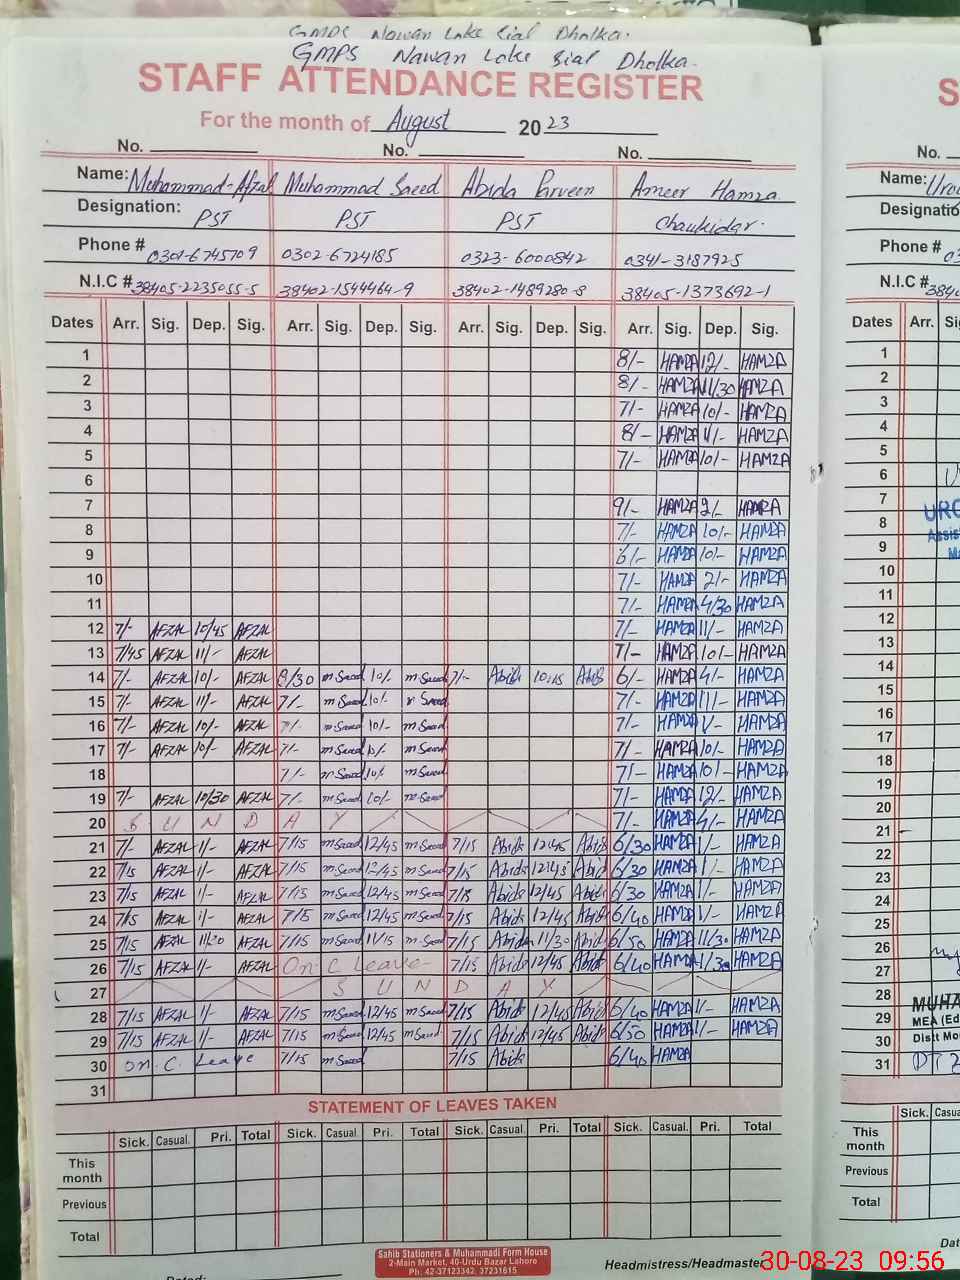 GMPS Nawan Loke Sial Dholka.
GMPS Nawan Loke Sial Dholka.
STAFF ATTENDANCE REGISTER
For the month of August 2023
No. No. No. No.
Name: Muhammad Afzal Muhammad Saeed Abida Parveen Ameer Hamza Name:
Designation: PST PST PST Chaukidar. Designatio
Phone # 0301-6745709 0302-6724185 0323-6000842 0341-3187925 Phone #
N.I.C # 38405-2235055-5 38402-1544464-9 38402-1489280-8 38405-1373692-1 N.I.C #
Dates Arr. Sig. Dep. Sig. Arr. Sig. Dep. Sig. Arr. Sig. Dep. Sig. Arr. Sig. Dep. Sig. Dates Arr.
1 8/- HAMZA 12/- HAMZA 1
2 8/- HAMZA 11/30 HAMZA 2
3 7/- HAMZA 10/- HAMZA 3
4 8/- HAMZA 11/- HAMZA 4
5 7/- HAMZA 10/- HAMZA 5
6 6
7 9/- HAMZA 2/- HAMZA 7
8 7/- HAMZA 10/- HAMZA 8
9 6/- HAMZA 10/- HAMZA 9
10 7/- HAMZA 2/- HAMZA 10
11 7/- HAMZA 4/30 HAMZA 11
12 7/- AFZAL 10/45 AFZAL 7/- HAMZA 11/- HAMZA 12
13 7/45 AFZAL 11/- AFZAL 7/- HAMZA 10/- HAMZA 13
14 7/- AFZAL 10/- AFZAL 8/30 m Saeed 10/- m Saeed 7/- Abida 10:45 Abida 6/- HAMZA 4/- HAMZA 14
15 7/- AFZAL 11/- AFZAL 7/- m Saeed 10/- m Saeed 7/- HAMZA 11/- HAMZA 15
16 7/- AFZAL 10/- AFZAL 7/- m Saeed 10/- m Saeed 7/- HAMZA 1/- HAMZA 16
17 7/- AFZAL 10/- AFZAL 7/- m Saeed 10/- m Saeed 7/- HAMZA 10/- HAMZA 17
18 7/- m Saeed 10/- m Saeed 7/- HAMZA 10/- HAMZA 18
19 7/- AFZAL 10/30 AFZAL 7/- m Saeed 10/- m Saeed 7/- HAMZA 12/- HAMZA 19
20 SUNDAY 7/- HAMZA 4/- HAMZA 20
21 7/- AFZAL 1/- AFZAL 7/15 m Saeed 12/45 m Saeed 7/15 Abida 12:45 Abida 6/30 HAMZA 1/- HAMZA 21
22 7/15 AFZAL 1/- AFZAL 7/15 m Saeed 12/45 m Saeed 7/15 Abida 12:45 Abida 6/30 HAMZA 1/- HAMZA 22
23 7/15 AFZAL 1/- AFZAL 7/15 m Saeed 12/45 m Saeed 7/15 Abida 12/45 Abida 6/30 HAMZA 1/- HAMZA 23
24 7/15 AFZAL 1/- AFZAL 7/15 m Saeed 12/45 m Saeed 7/15 Abida 12/45 Abida 6/40 HAMZA 1/- HAMZA 24
25 7/15 AFZAL 11/30 AFZAL 7/15 m Saeed 11/15 m Saeed 7/15 Abida 11/30 Abida 6/50 HAMZA 11/30 HAMZA 25
26 7/15 AFZAL 1/- AFZAL On C Leave 7/15 Abida 12/45 Abida 6/40 HAMZA 1/30 HAMZA 26
27 SUNDAY 27
28 7/15 AFZAL 1/- AFZAL 7/15 m Saeed 12/45 m Saeed 7/15 Abida 12/45 Abida 6/40 HAMZA 1/- HAMZA 28 MUHA
29 7/15 AFZAL 1/- AFZAL 7/15 m Saeed 12/45 m Saeed 7/15 Abida 12/45 Abida 6/50 HAMZA 1/- HAMZA 29 MEA (Ed
30 on C. Leave 7/15 m Saeed 7/15 Abida 6/40 HAMZA 30 Distt Mo
31 31
STATEMENT OF LEAVES TAKEN
Sick. Casual. Pri. Total Sick. Casual Pri. Total Sick. Casual. Pri. Total Sick. Casual. Pri. Total Sick. Casua
This month This month
Previous Previous
Total Total
Sahib Stationers & Muhammadi Form House
2-Main Market, 40-Urdu Bazar Lahore
Ph: 42-37123342, 37231615
Dated: Headmistress/Headmaster Dat
30-08-23 09:56